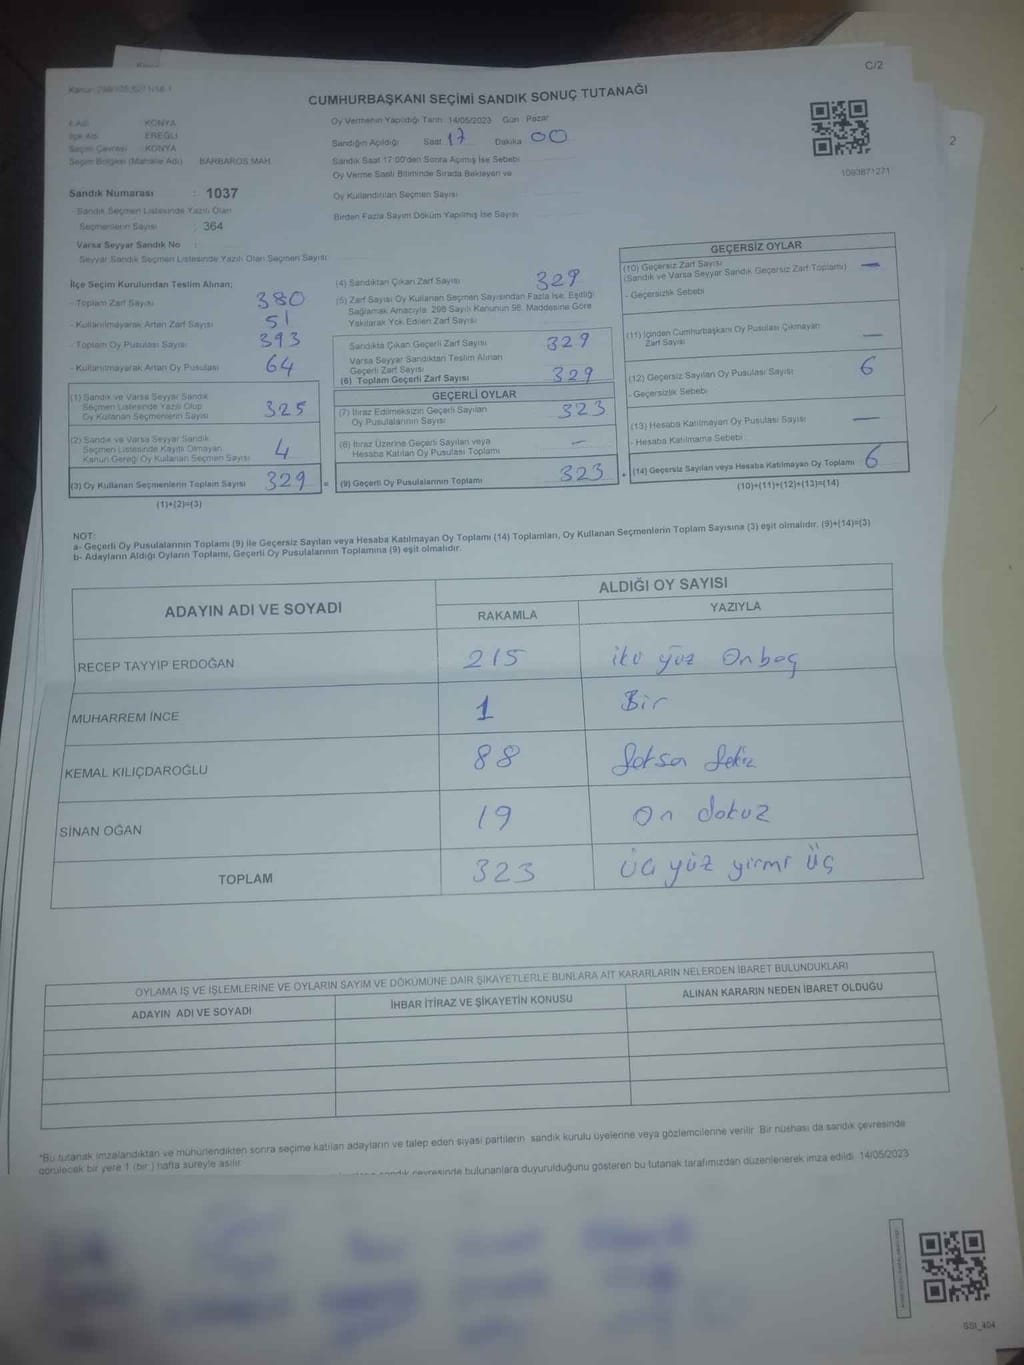 C/2
CUMHURBAŞKANI SEÇİMİ SANDIK SONUÇ TUTANAĞI
2
1093871271
İl Adı : KONYA
İlçe Adı : EREĞLİ
Seçim Çevresi : KONYA
Seçim Bölgesi (Mahalle Adı) BARBAROS MAH.
Sandık Numarası : 1037
- Sandık Seçmen Listesinde Yazılı Olan
Seçmenlerin Sayısı : 364
Varsa Seyyar Sandık No :
Seyyar Sandık Seçmen Listesinde Yazılı Olan Seçmen Sayısı:
Oy Vermenin Yapıldığı Tarih: 14/05/2023 Gün: Pazar
Sandığın Açıldığı Saat 17 Dakika 00
Sandık Saat 17:00'den Sonra Açılmış İse Sebebi
Oy Verme Saati Bitiminde Sırada Bekleyen ve
Oy Kullandırılan Seçmen Sayısı
Birden Fazla Sayım Döküm Yapılmış İse Sayısı
İlçe Seçim Kurulundan Teslim Alınan;
- Toplam Zarf Sayısı 380
- Kullanılmayarak Artan Zarf Sayısı 51
- Toplam Oy Pusulası Sayısı 393
- Kullanılmayarak Artan Oy Pusulası 64
(1) Sandık ve Varsa Seyyar Sandık
Seçmen Listesinde Yazılı Olup
Oy Kullanan Seçmenlerin Sayısı 325
(2) Sandık ve Varsa Seyyar Sandık
Seçmen Listesinde Kayıtlı Olmayan
Kanun Gereği Oy Kullanan Seçmen Sayısı 4
(3) Oy Kullanan Seçmenlerin Toplam Sayısı 329 =
(1)+(2)=(3)
(4) Sandıktan Çıkan Zarf Sayısı 329
(5) Zarf Sayısı Oy Kullanan Seçmen Sayısından Fazla İse, Eşitliği
Sağlamak Amacıyla; 298 Sayılı Kanunun 98. Maddesine Göre
Yakılarak Yok Edilen Zarf Sayısı
Sandıkta Çıkan Geçerli Zarf Sayısı 329
Varsa Seyyar Sandıktan Teslim Alınan
Geçerli Zarf Sayısı
(6) Toplam Geçerli Zarf Sayısı 329
GEÇERLİ OYLAR
(7) İtiraz Edilmeksizin Geçerli Sayılan
Oy Pusulalarının Sayısı 323
(8) İtiraz Üzerine Geçerli Sayılan veya
Hesaba Katılan Oy Pusulası Toplamı -
(9) Geçerli Oy Pusulalarının Toplamı 323 +
GEÇERSİZ OYLAR
(10) Geçersiz Zarf Sayısı
(Sandık ve Varsa Seyyar Sandık Geçersiz Zarf Toplamı) -
- Geçersizlik Sebebi
(11) İçinden Cumhurbaşkanı Oy Pusulası Çıkmayan
Zarf Sayısı -
(12) Geçersiz Sayılan Oy Pusulası Sayısı 6
- Geçersizlik Sebebi
(13) Hesaba Katılmayan Oy Pusulası Sayısı -
- Hesaba Katılmama Sebebi
(14) Geçersiz Sayılan veya Hesaba Katılmayan Oy Toplamı 6
(10)+(11)+(12)+(13)=(14)
NOT:
a- Geçerli Oy Pusulalarının Toplamı (9) ile Geçersiz Sayılan veya Hesaba Katılmayan Oy Toplamı (14) Toplamları, Oy Kullanan Seçmenlerin Toplam Sayısına (3) eşit olmalıdır. (9)+(14)=(3)
b- Adayların Aldığı Oyların Toplamı, Geçerli Oy Pusulalarının Toplamına (9) eşit olmalıdır.
ADAYIN ADI VE SOYADI
ALDIĞI OY SAYISI
RAKAMLA YAZIYLA
RECEP TAYYIP ERDOĞAN 215 iki yüz Onbeş
MUHARREM İNCE 1 Bir
KEMAL KILIÇDAROĞLU 88 Seksen Sekiz
SİNAN OĞAN 19 On dokuz
TOPLAM 323 Üç yüz yirmi üç
OYLAMA İŞ VE İŞLEMLERİNE VE OYLARIN SAYIM VE DÖKÜMÜNE DAİR ŞİKAYETLERLE BUNLARA AİT KARARLARIN NELERDEN İBARET BULUNDUKLARI
ADAYIN ADI VE SOYADI İHBAR İTİRAZ VE ŞİKAYETİN KONUSU ALINAN KARARIN NEDEN İBARET OLDUĞU
*Bu tutanak imzalandıktan ve mühürlendikten sonra seçime katılan adayların ve talep eden siyasi partilerin sandık kurulu üyelerine veya gözlemcilerine verilir. Bir nüshası da sandık çevresinde
görülecek bir yere 1 (bir ) hafta süreyle asılır.
sandık çevresinde bulunanlara duyurulduğunu gösteren bu tutanak tarafımızdan düzenlenerek imza edildi. 14/05/2023
SSI_404